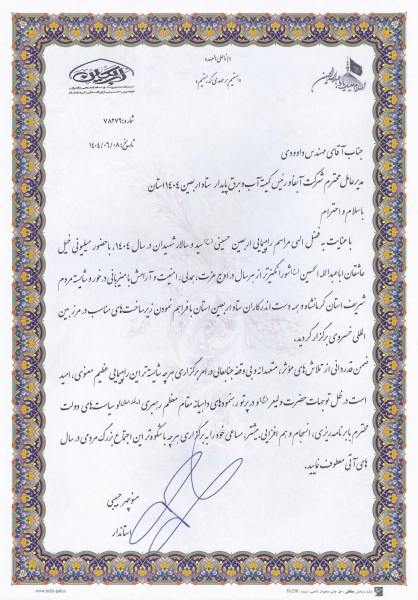 «انا علی العهد»
«هستیم بر عهدی که بستیم»
شماره: ۷۸۲۷۶
تاریخ: ۱۴۰۴/۰۶/۰۸
جناب آقای مهندس داوودی
مدیرعامل محترم شرکت آبفا و رئیس کمیته آب و برق پایدار ستاد اربعین ۱۴۰۴ استان
با سلام و احترام
با عنایت به فضل الهی مراسم راهپیمایی اربعین حسینی (ع) سید و سالار شهیدان در سال ۱۴۰۴، با حضور میلیونی خیل
عاشقان اباعبدالله الحسین (ع) شورانگیزتر از هر سال در اوج عزت، همدلی، امنیت و آرامش با میزبانی درخور و شایسته مردم
شریف استان کرمانشاه و به دست اندرکاران ستاد اربعین استان با فراهم نمودن زیرساخت‌های مناسب در مرز بین
المللی خسروی برگزار گردید.
ضمن قدردانی از تلاش‌های مؤثر، متعهدانه و بی وقفه جنابعالی در امر برگزاری هرچه شایسته تر این راهپیمایی عظیم معنوی، امید
است در ظل توجهات حضرت ولیعصر (عج) و در پرتو رهنمودهای داهیانه مقام معظم رهبری (مدظله العالی) و سیاست‌های دولت
محترم با برنامه‌ریزی، انسجام و هم افزایی بیشتر، مساعی خود را به برگزاری هرچه باشکوه‌تر این اجتماع بزرگ مردمی در سال
های آتی معطوف نمایید.
منوچهر حبیبی
استاندار
H-258